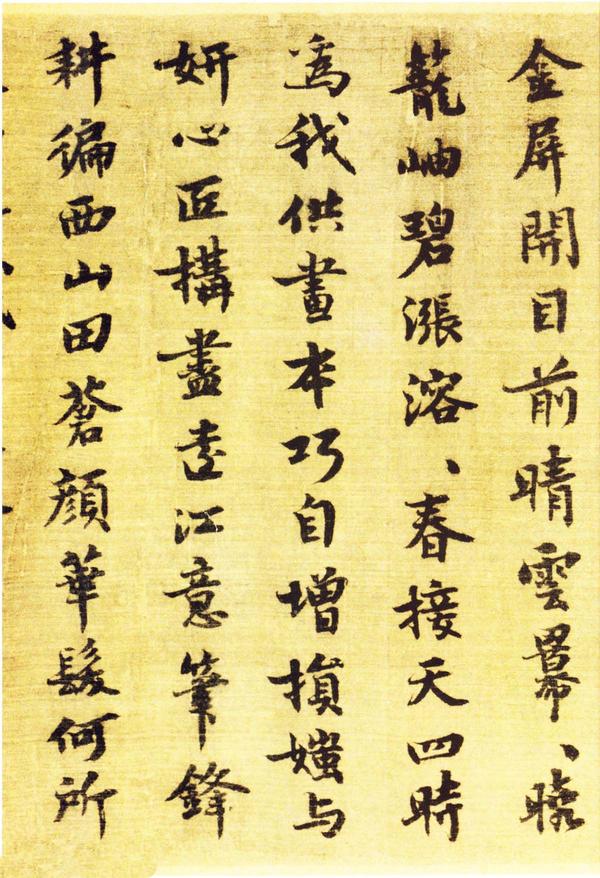 金屏開目前晴雲冪、曉
籠岫碧漲溶、春接天四時
為我供畫本巧自增損媸与
妍心匠構盡遠江意筆鋒
耕徧西山田蒼顔華髮何所